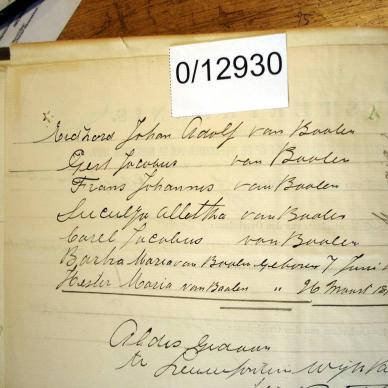 0/12930
Johan Adolf van Baalen
Gert Jacobus van Baalen
Frans Johannis van Baalen
Alletha van Baalen
Carel Jacobus van Baalen
Barba Maria van Baalen geboren 7 Juni
Hester Maria van Baalen " 26 Maart
Aldus Gedaan
te